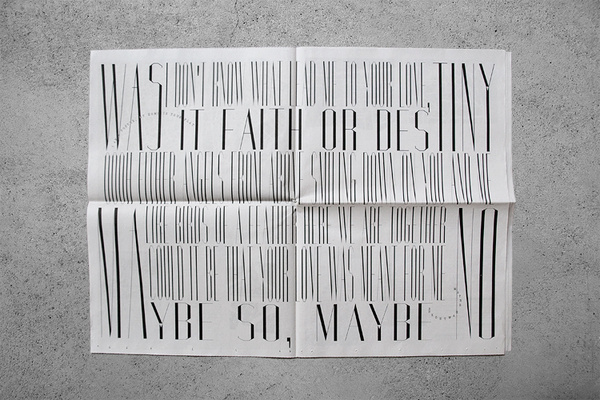 I DON'T KNOW WHAT LED ME TO YOUR LOVE,
WAS IT FAITH OR DESTINY
ANGELS FROM DOWN ON YOU AND ME
LIKE BIRDS OF A FEATHER HERE WE ARE TOGETHER
COULD IT BE THAT YOUR LOVE WAS MEANT FOR ME
MAYBE SO, MAYBE NO